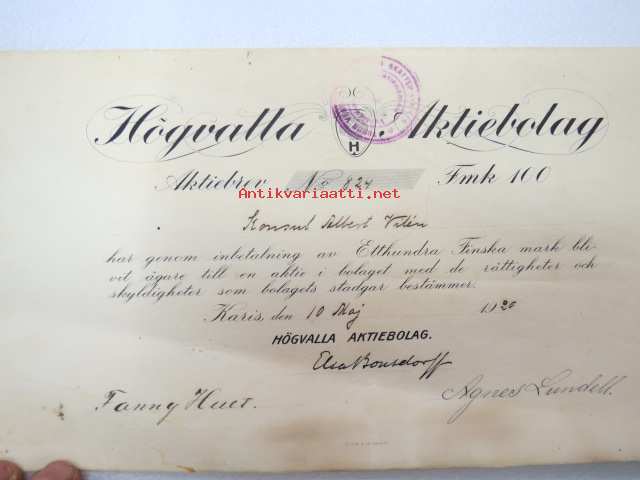 Högvalla Aktiebolag
H
Aktiebrev No 824 Fmk 100
Antikvariaatti.net
www.antikvariaatti.net
Konsul Albert Vilén
har genom inbetalning av Etthundra Finska mark bli-
vit ägare till en aktie i bolaget med de rättigheter och
skyldigheter som bolagets stadgar bestämmer.
Karis, den 10 Maj 1920
HÖGVALLA AKTIEBOLAG.
Elsa Bonsdorff
Fanny Huet. Agnes Lundell.